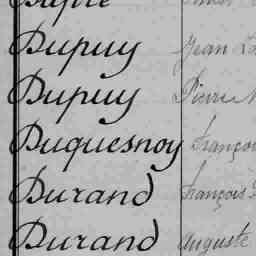 Dupuy Jean
Dupuy Pierre
Duquesnoy François
Durand François
Durand Auguste